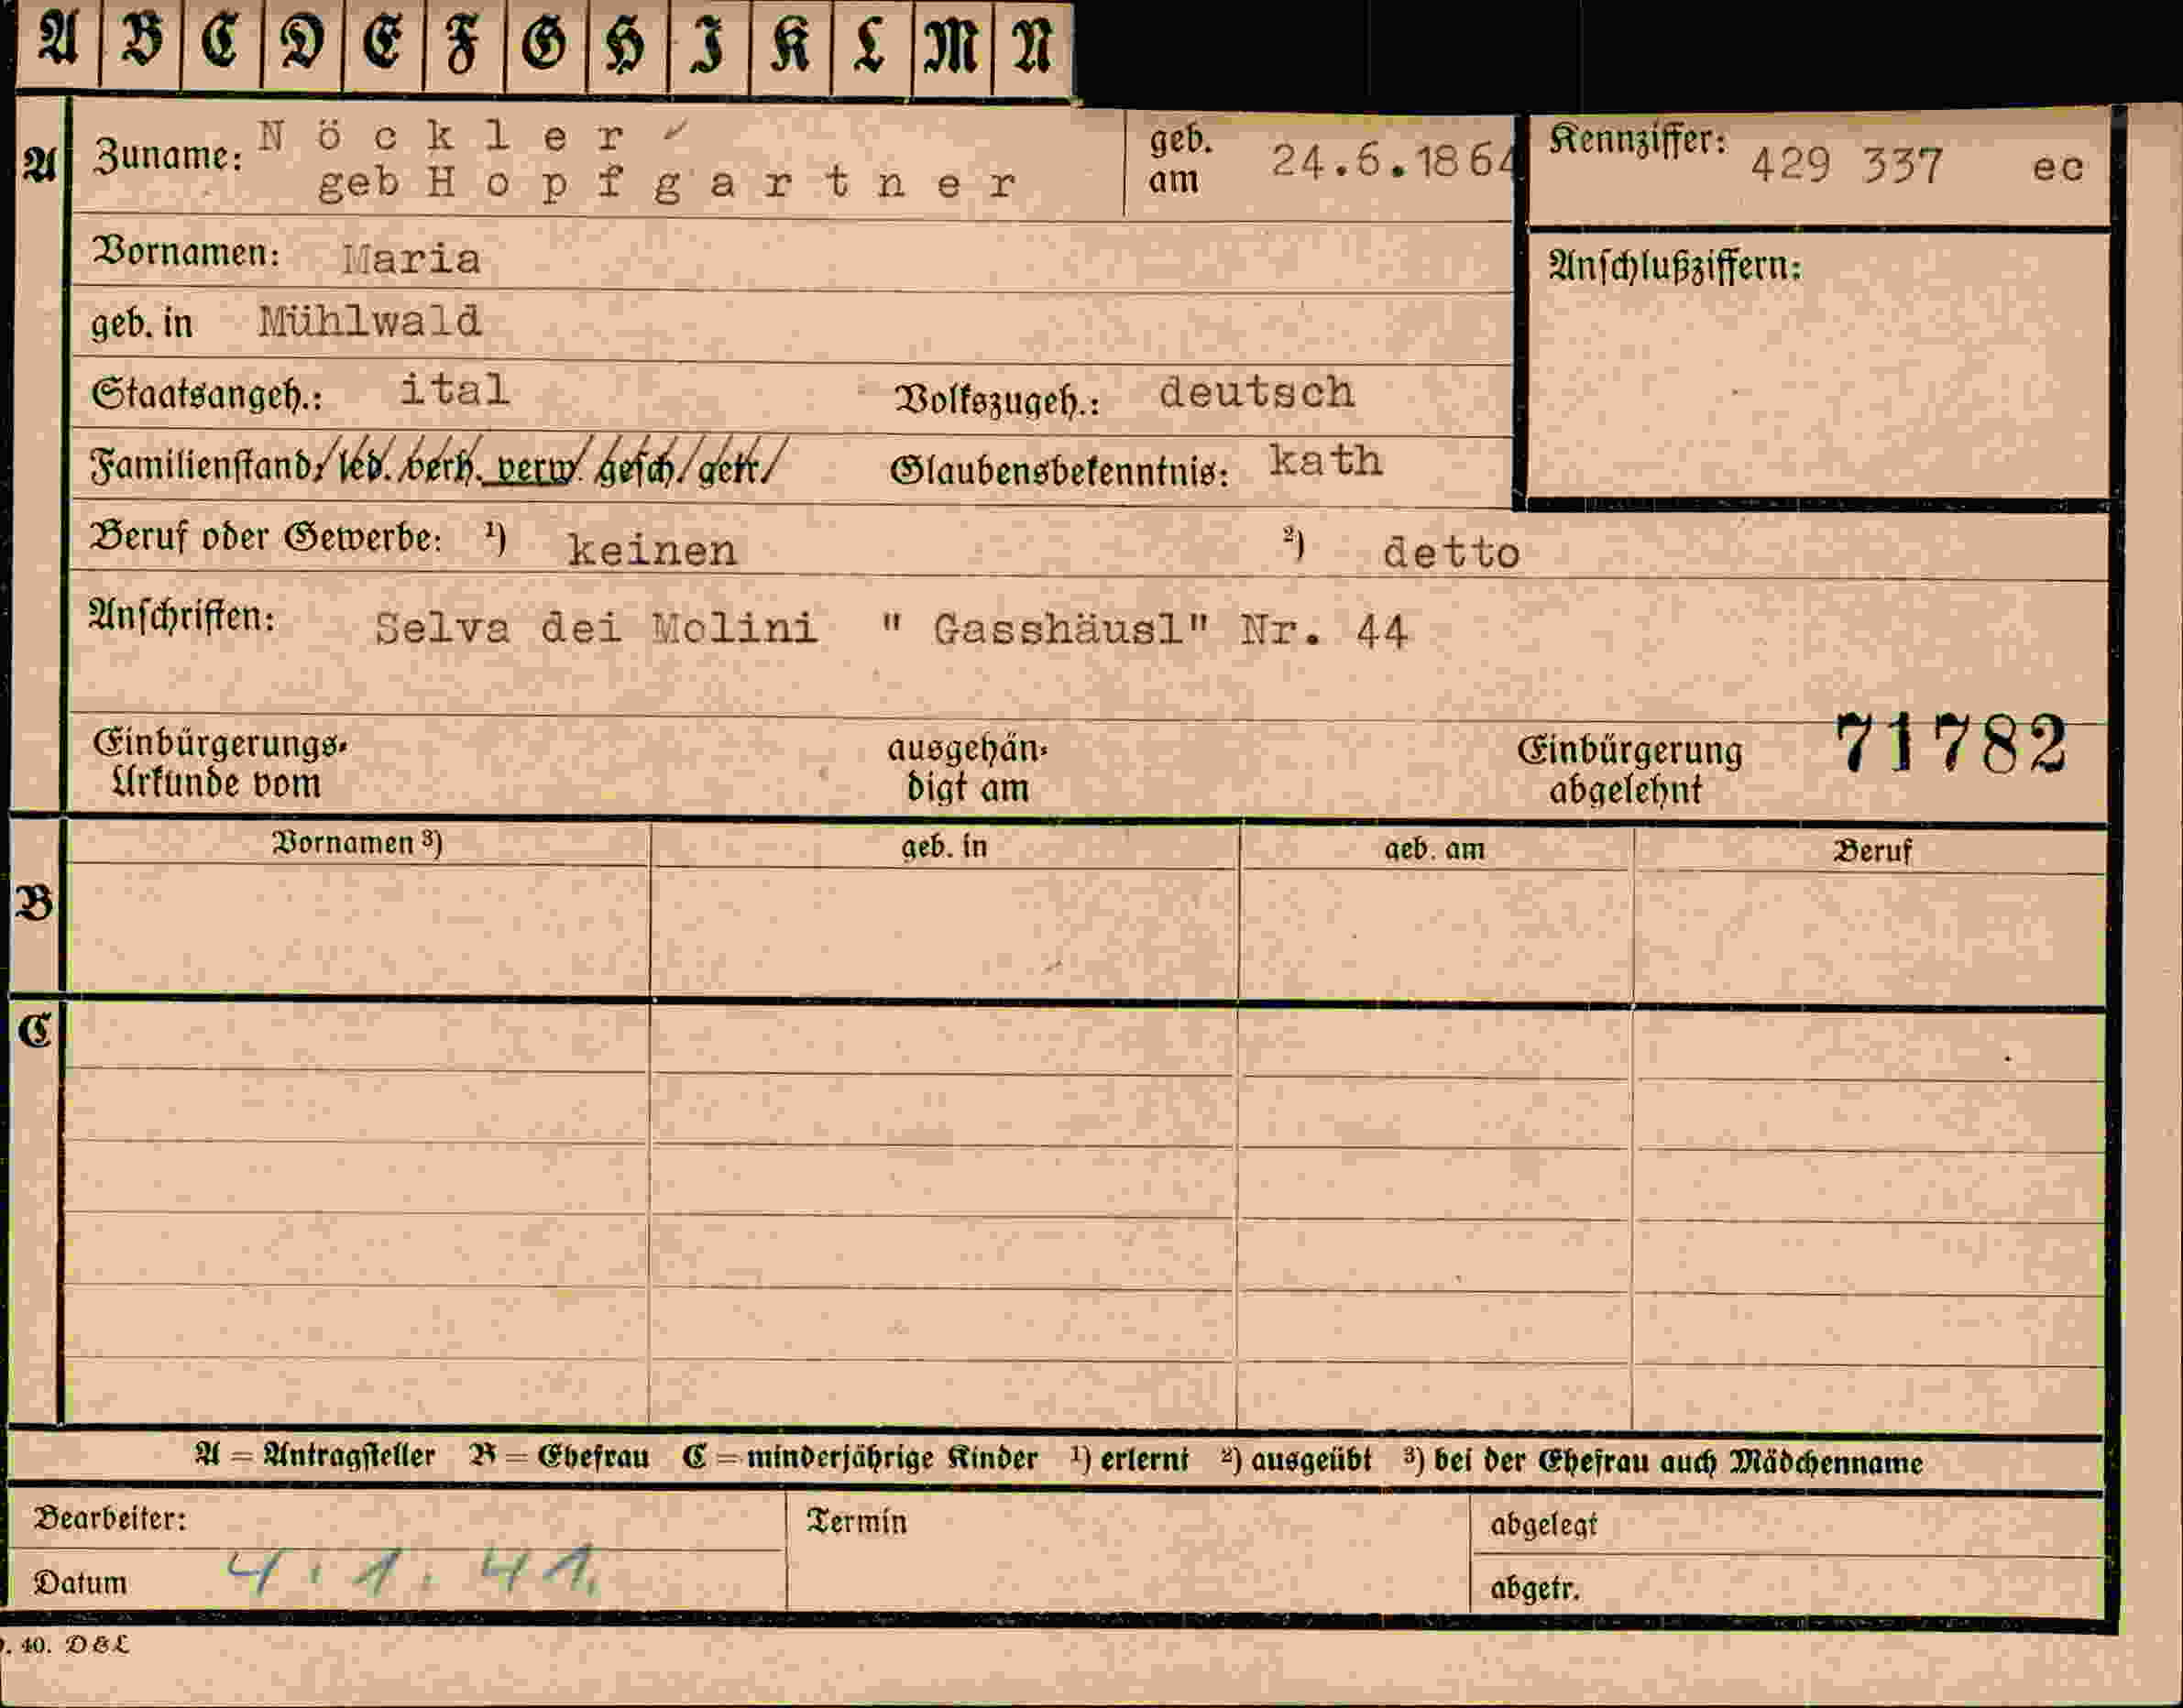 A B C D E F G H I K L M N
A Zuname: Nöckler geb. am 24.6.1864 Kennziffer: 429 337 ec
geb Hopfgartner
Vornamen: Maria Anschlußziffern:
geb. in Mühlwald
Staatsangeh.: ital Volkszugeh.: deutsch
Familienstand: led. verh. verw. gesch. getr. Glaubensbekenntnis: kath
Beruf oder Gewerbe: 1) keinen 2) detto
Anschriften: Selva dei Molini " Gasshäusl" Nr. 44
Einbürgerungs- ausgehän- Einbürgerung 71782
Urkunde vom digt am abgelehnt
Vornamen 3) geb. in geb. am Beruf
B
C
A = Antragsteller B = Ehefrau C = minderjährige Kinder 1) erlernt 2) ausgeübt 3) bei der Ehefrau auch Mädchenname
Bearbeiter: Termin abgelegt
Datum 4.1.41. abgetr.
. 40. D&L